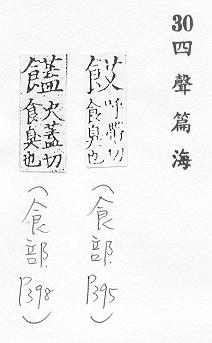 30四聲篇海
餀呼艾切食臭也
(食部 P395)
饚火蓋切食臭也
(食部 P398)